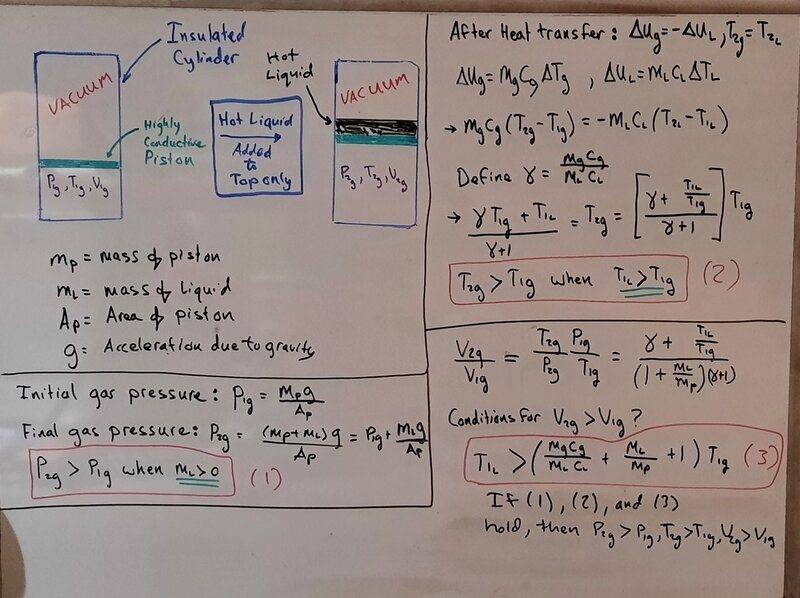 Insulated
Cylinder
VACUUM
Highly
Conductive
Piston
P1g, T1g, V1g
Hot Liquid
Added
to
Top only
Hot
Liquid
VACUUM
P2g, T2g, V2g
mp = mass of piston
mL = mass of liquid
Ap = Area of piston
g = Acceleration due to gravity
Initial gas pressure: P1g = mpg/Ap
Final gas pressure: P2g = (mp+mL)g/Ap = P1g + mLg/Ap
P2g > P1g when mL>0 (1)
After Heat transfer: ΔUg=-ΔUL, T2g=T2L
ΔUg=mgCgΔTg , ΔUL=mLCLΔTL
→ mgCg(T2g-T1g)=-mLCL(T2L-T1L)
Define γ = mgCg/mLCL
→ (γT1g+T1L)/(γ+1) = T2g = [(γ + T1L/T1g)/(γ+1)] T1g
T2g > T1g when T1L>T1g (2)
V2g/V1g = T2g/P2g P1g/T1g = (γ + T1L/T1g)/((1+mL/mp)(γ+1))
Conditions for V2g>V1g?
T1L > (mgCg/mLCL + mL/mp + 1) T1g (3)
If (1), (2), and (3)
hold, then P2g>P1g, T2g>T1g, V2g>V1g